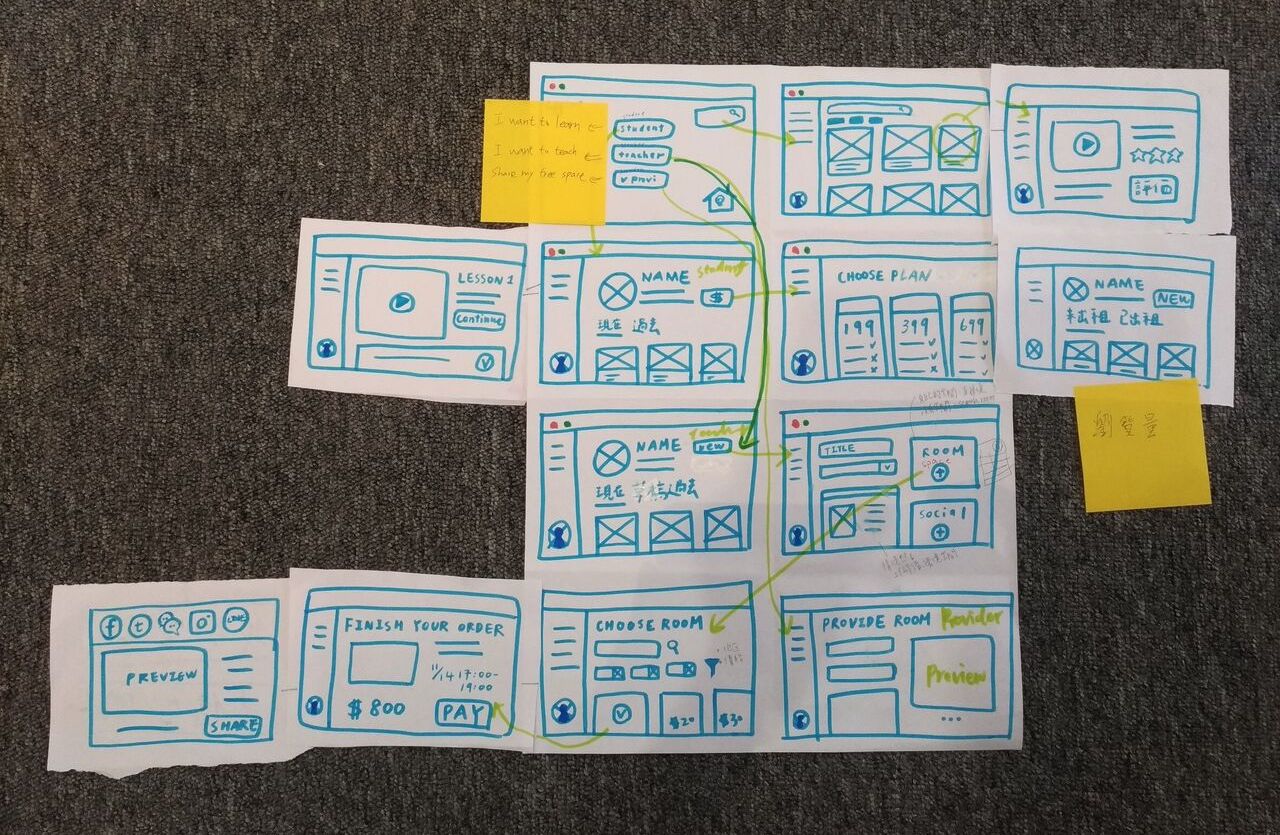 I want to learn
I want to teach
Share my free space
student
teacher
v provi
LESSON 1
Continue
NAME
student
$
現在 過去
CHOOSE PLAN
199
399
699
NAME
NEW
未出租 已出租
瀏覽量
NAME
new
現在 草稿 過去
TITLE
ROOM
space
social
PREVIEW
SHARE
LINE
FINISH YOUR ORDER
11/14 17:00-
19:00
$ 800
PAY
CHOOSE ROOM
$20
$30
PROVIDE ROOM
Provider
Preview